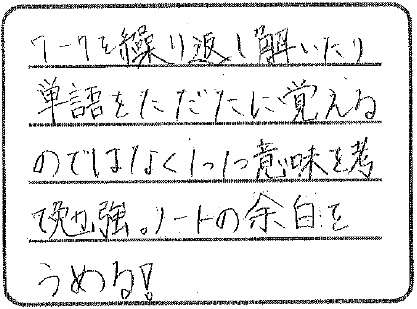 ワークを繰り返し解いたり
単語をただたに覚える
のではなく1つ1つ意味を考
て勉強。ノートの余白を
うめる!